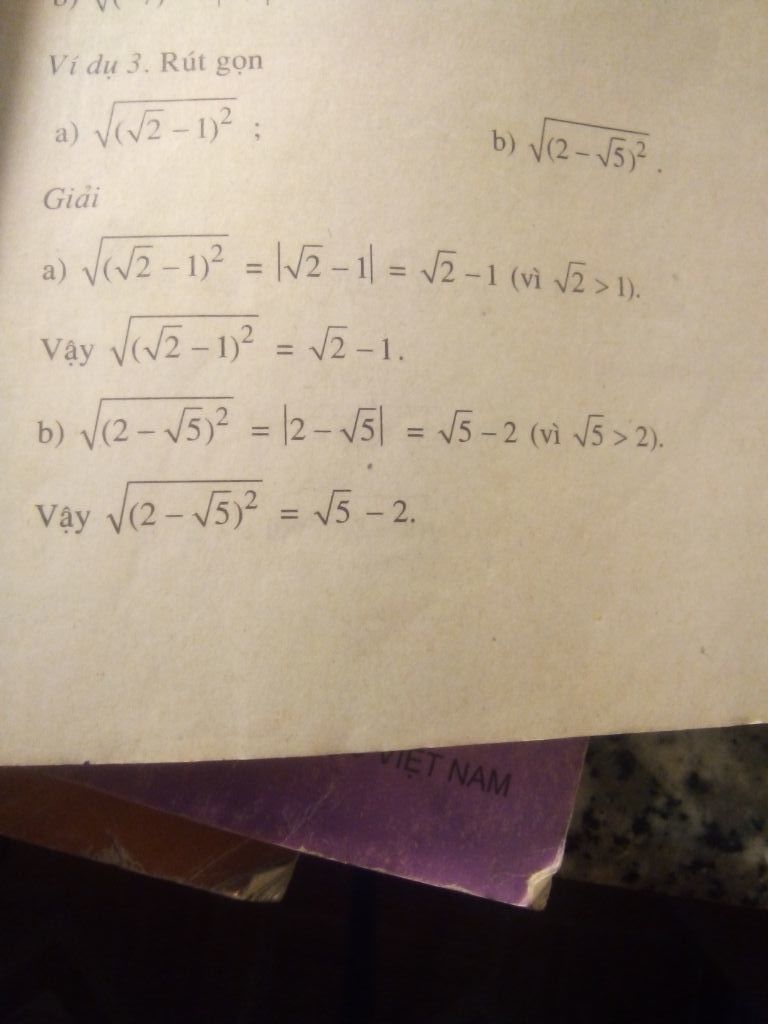 Ví dụ 3. Rút gọn
a) √(√2 − 1)² ; b) √(2 − √5)² .
Giải
a) √(√2 − 1)² = |√2 − 1| = √2 − 1 (vì √2 > 1).
Vậy √(√2 − 1)² = √2 − 1.
b) √(2 − √5)² = |2 − √5| = √5 − 2 (vì √5 > 2).
Vậy √(2 − √5)² = √5 − 2.
VIỆT NAM